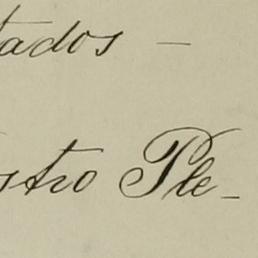 tados —
stro Ple-